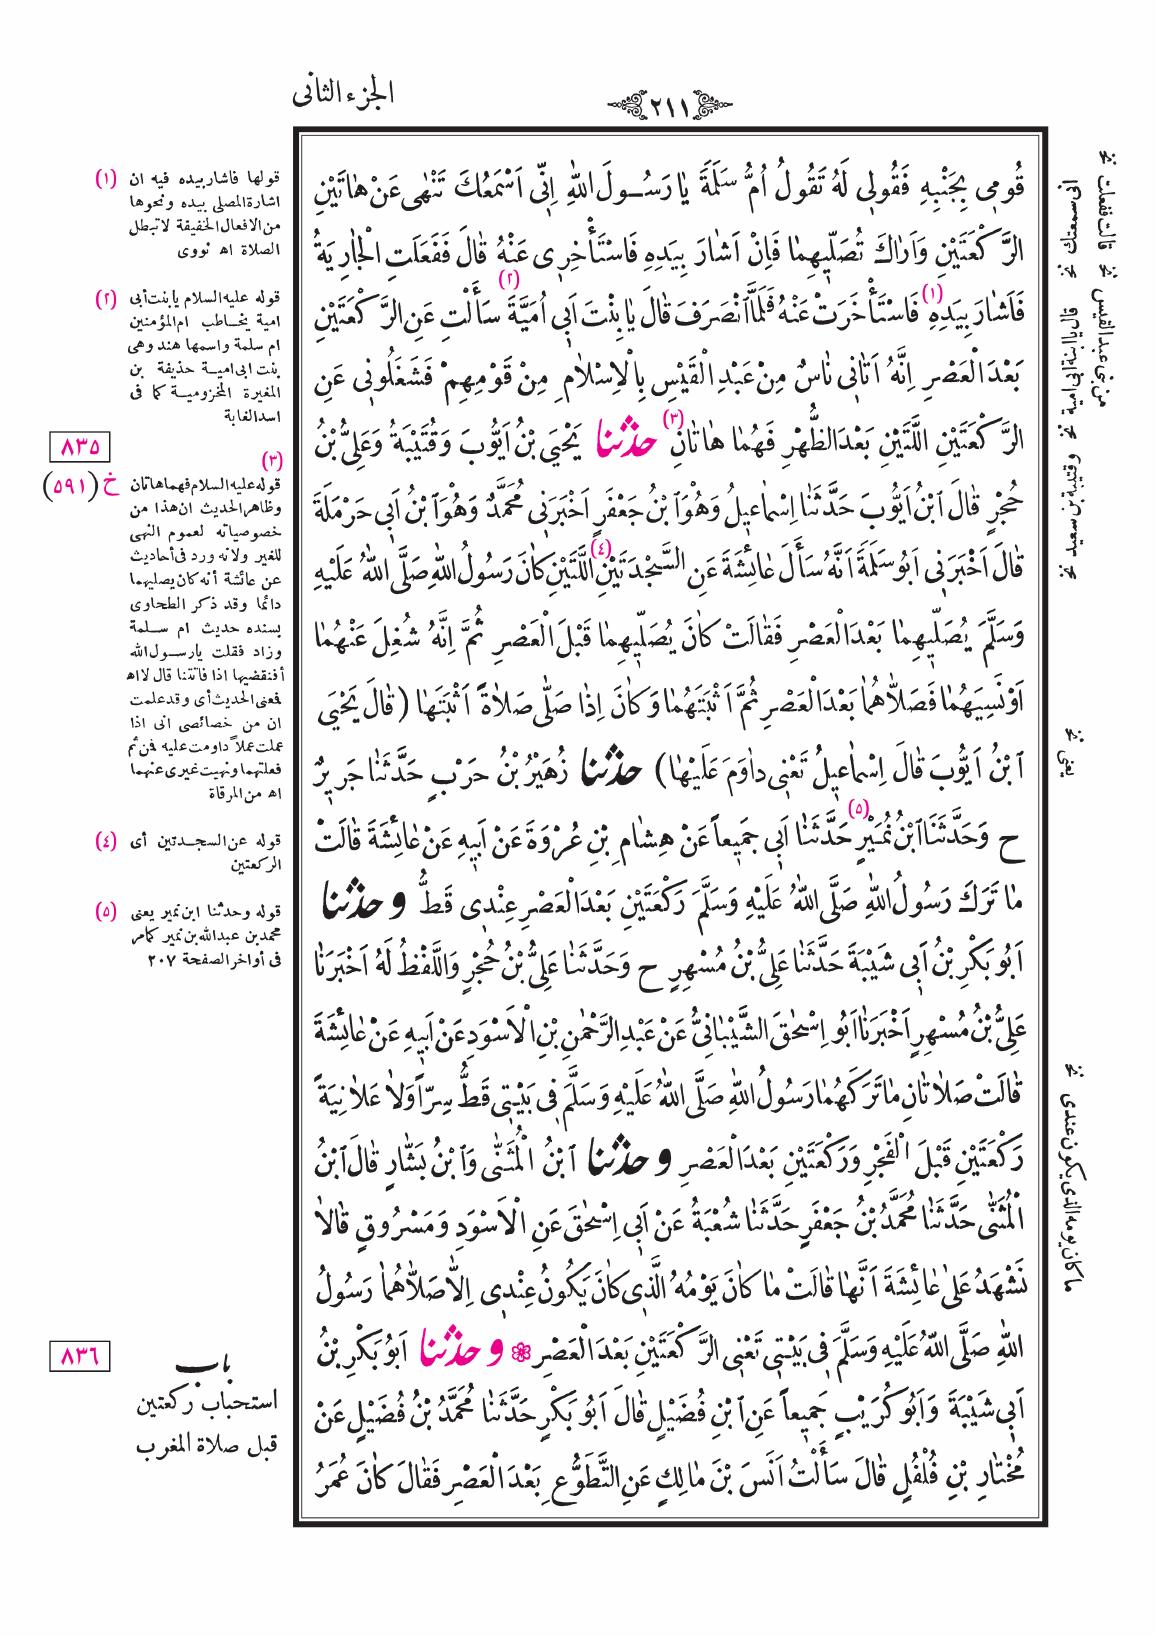 الجزء الثانى
٢١١
قُومِى بِجَنْبِهِ فَقُولِى لَهُ تَقُولُ اُمُّ سَلَمَةَ يَا رَسُولَ اللّٰهِ اِنِّى اَسْمَعُكَ تَنْهٰى عَنْ هَاتَيْنِ
الرَّكْعَتَيْنِ وَاَرَاكَ تُصَلِّيهِمَا فَاِنْ اَشَارَ بِيَدِهِ فَاسْتَأْخِرِى عَنْهُ قَالَ فَفَعَلَتِ الْجَارِيَةُ
فَاَشَارَ بِيَدِهِ (١) فَاسْتَأْخَرَتْ عَنْهُ فَلَمَّا انْصَرَفَ قَالَ يَا بِنْتَ (٢) اَبِى اُمَيَّةَ سَأَلْتِ عَنِ الرَّكْعَتَيْنِ
بَعْدَ الْعَصْرِ اِنَّهُ اَتَانِى نَاسٌ مِنْ عَبْدِ الْقَيْسِ بِالْاِسْلَامِ مِنْ قَوْمِهِمْ فَشَغَلُونِى عَنِ
الرَّكْعَتَيْنِ اللَّتَيْنِ بَعْدَ الظُّهْرِ فَهُمَا هَاتَانِ (٣) حَدَّثَنَا يَحْيَى بْنُ اَيُّوبَ وَقُتَيْبَةُ وَعَلِىُّ بْنُ
حُجْرٍ قَالَ ابْنُ اَيُّوبَ حَدَّثَنَا اِسْمَاعِيلُ وَهُوَ ابْنُ جَعْفَرٍ اَخْبَرَنِى مُحَمَّدٌ وَهُوَ ابْنُ اَبِى حَرْمَلَةَ
قَالَ اَخْبَرَنِى اَبُو سَلَمَةَ اَنَّهُ سَأَلَ عَائِشَةَ عَنِ السَّجْدَتَيْنِ (٤) اللَّتَيْنِ كَانَ رَسُولُ اللّٰهِ صَلَّى اللّٰهُ عَلَيْهِ
وَسَلَّمَ يُصَلِّيهِمَا بَعْدَ الْعَصْرِ فَقَالَتْ كَانَ يُصَلِّيهِمَا قَبْلَ الْعَصْرِ ثُمَّ اِنَّهُ شُغِلَ عَنْهُمَا
اَوْ نَسِيَهُمَا فَصَلَّاهُمَا بَعْدَ الْعَصْرِ ثُمَّ اَثْبَتَهُمَا وَكَانَ اِذَا صَلَّى صَلَاةً اَثْبَتَهَا (قَالَ يَحْيَى
ابْنُ اَيُّوبَ قَالَ اِسْمَاعِيلُ تَعْنِى دَاوَمَ عَلَيْهَا) حَدَّثَنَا زُهَيْرُ بْنُ حَرْبٍ حَدَّثَنَا جَرِيرٌ
ح وَحَدَّثَنَا ابْنُ نُمَيْرٍ (٥) حَدَّثَنَا اَبِى جَمِيعاً عَنْ هِشَامِ بْنِ عُرْوَةَ عَنْ اَبِيهِ عَنْ عَائِشَةَ قَالَتْ
مَا تَرَكَ رَسُولُ اللّٰهِ صَلَّى اللّٰهُ عَلَيْهِ وَسَلَّمَ رَكْعَتَيْنِ بَعْدَ الْعَصْرِ عِنْدِى قَطُّ وَحَدَّثَنَا
اَبُو بَكْرِ بْنُ اَبِى شَيْبَةَ حَدَّثَنَا عَلِىُّ بْنُ مُسْهِرٍ ح وَحَدَّثَنَا عَلِىُّ بْنُ حُجْرٍ وَاللَّفْظُ لَهُ اَخْبَرَنَا
عَلِىُّ بْنُ مُسْهِرٍ اَخْبَرَنَا اَبُو اِسْحٰقَ الشَّيْبَانِىُّ عَنْ عَبْدِ الرَّحْمٰنِ بْنِ الْاَسْوَدِ عَنْ اَبِيهِ عَنْ عَائِشَةَ
قَالَتْ صَلَاتَانِ مَا تَرَكَهُمَا رَسُولُ اللّٰهِ صَلَّى اللّٰهُ عَلَيْهِ وَسَلَّمَ فِى بَيْتِى قَطُّ سِرّاً وَلَا عَلَانِيَةً
رَكْعَتَيْنِ قَبْلَ الْفَجْرِ وَرَكْعَتَيْنِ بَعْدَ الْعَصْرِ وَحَدَّثَنَا ابْنُ الْمُثَنَّى وَابْنُ بَشَّارٍ قَالَ ابْنُ
الْمُثَنَّى حَدَّثَنَا مُحَمَّدُ بْنُ جَعْفَرٍ حَدَّثَنَا شُعْبَةُ عَنْ اَبِى اِسْحٰقَ عَنِ الْاَسْوَدِ وَمَسْرُوقٍ قَالَا
نَشْهَدُ عَلَى عَائِشَةَ اَنَّهَا قَالَتْ مَا كَانَ يَوْمُهُ الَّذِى كَانَ يَكُونُ عِنْدِى اِلَّا صَلَّاهُمَا رَسُولُ
اللّٰهِ صَلَّى اللّٰهُ عَلَيْهِ وَسَلَّمَ فِى بَيْتِى تَعْنِى الرَّكْعَتَيْنِ بَعْدَ الْعَصْرِ ❁ وَحَدَّثَنَا اَبُو بَكْرِ بْنُ
اَبِى شَيْبَةَ وَاَبُو كُرَيْبٍ جَمِيعاً عَنِ ابْنِ فُضَيْلٍ قَالَ اَبُو بَكْرٍ حَدَّثَنَا مُحَمَّدُ بْنُ فُضَيْلٍ عَنْ
مُخْتَارِ بْنِ فُلْفُلٍ قَالَ سَأَلْتُ اَنَسَ بْنَ مَالِكٍ عَنِ التَّطَوُّعِ بَعْدَ الْعَصْرِ فَقَالَ كَانَ عُمَرُ
(١) قولها فاشار بيده فيه ان
اشارة المصلى بيده ونحوها
من الافعال الخفيفة لا تبطل
الصلاة اه نووى
(٢) قوله عليه السلام يا بنت أبى
امية يخاطب ام المؤمنين
ام سلمة واسمها هند وهى
بنت ابى امية حذيفة بن
المغيرة المخزومية كما فى
اسد الغابة
٨٣٥
(٣)
خ (٥٩١)
قوله عليه السلام فهما هاتان
وظاهر الحديث ان هذا من
خصوصياته لعموم النهى
للغير ولانه ورد فى أحاديث
عن عائشة أنه كان يصليهما
دائما وقد ذكر الطحاوى
بسنده حديث ام سلمة
وزاد فقلت يا رسول الله
أفنقضيها اذا فاتتنا قال لا اه
فمعنى الحديث أى وقد علمت
ان من خصائصى انى اذا
عملت عملاً داومت عليه فمن ثم
فعلتهما ونهيت غيرى عنهما
اه من المرقاة
(٤) قوله عن السجدتين أى
الركعتين
(٥) قوله وحدثنا ابن نمير يعنى
محمد بن عبدالله بن نمير كمامر
فى أواخر الصفحة ٢٠٧
٨٣٦
باب
استحباب ركعتين
قبل صلاة المغرب
انى سمعتك نخ
قالت ففعلت نخ
قال يا ابنة ابى امية نخ
من بنى عبدالقيس نخ
وقتيبة بن سعيد نخ
يعنى نخ
ما كان يومه الذى يكون عندى نخ